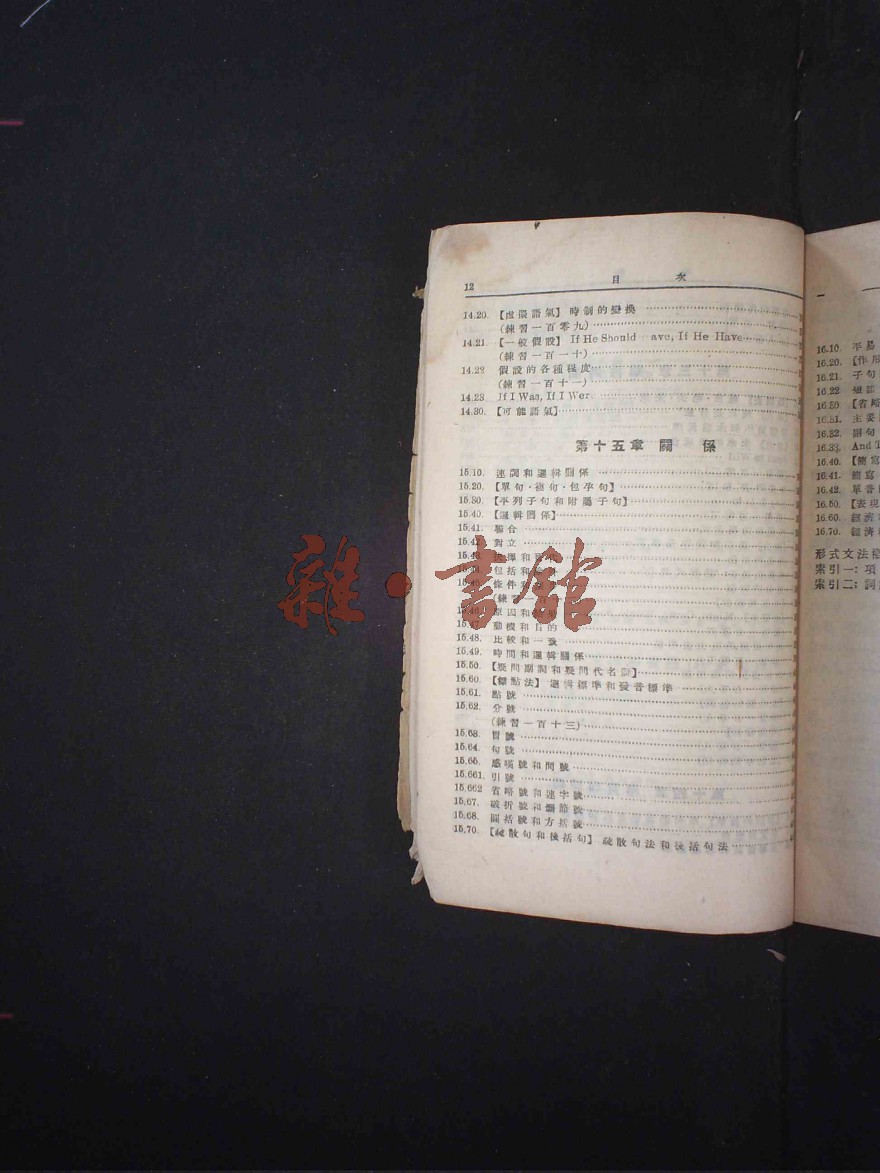 12 目 次
14.20. 【虛擬語氣】 時制的變換
(練習一百零九)
14.21. 【一般假設】 If He Should ave, If He Have
(練習一百一十)
14.22 假設的各種程度
(練習一百十一)
14.23. If I Was, If I Wer
14.30. 【可能語氣】
第十五章 關 係
15.10. 連詞和邏輯關係
15.20. 【單句·複句·包孕句】
15.30. 【平列子句和附屬子句】
15.40. 【邏輯關係】
15.41. 聯合
15.42. 對立
15.43.
包括和
條件和
(練習一
原因和
動機和目的
15.48. 比較和一致
15.49. 時間和邏輯關係
15.50. 【疑問副詞和疑問代名詞】
15.60. 【標點法】 邏輯標準和發音標準
15.61. 點號
15.62. 分號
(練習一百十三)
15.63. 冒號
15.64. 句號
15.65. 感嘆號和問號
15.661. 引號
15.662 省略號和連字號
15.67. 破折號和
15.68. 圓括號和方括號
15.70. 【疏散句和後括句】 疏散句法和後括句法
雜·書館
16.10. 平易
16.20. 【作用
16.21. 子句
16.22 短語
16.30 【省略
16.31. 主要
16.32. 副句
16.33. And T
16.40. 【簡寫
16.41. 簡寫
16.42. 單音
16.50. 【表現
16.60. 經濟
16.70. 經濟
形式文法
索引一: 項
索引二: 詞